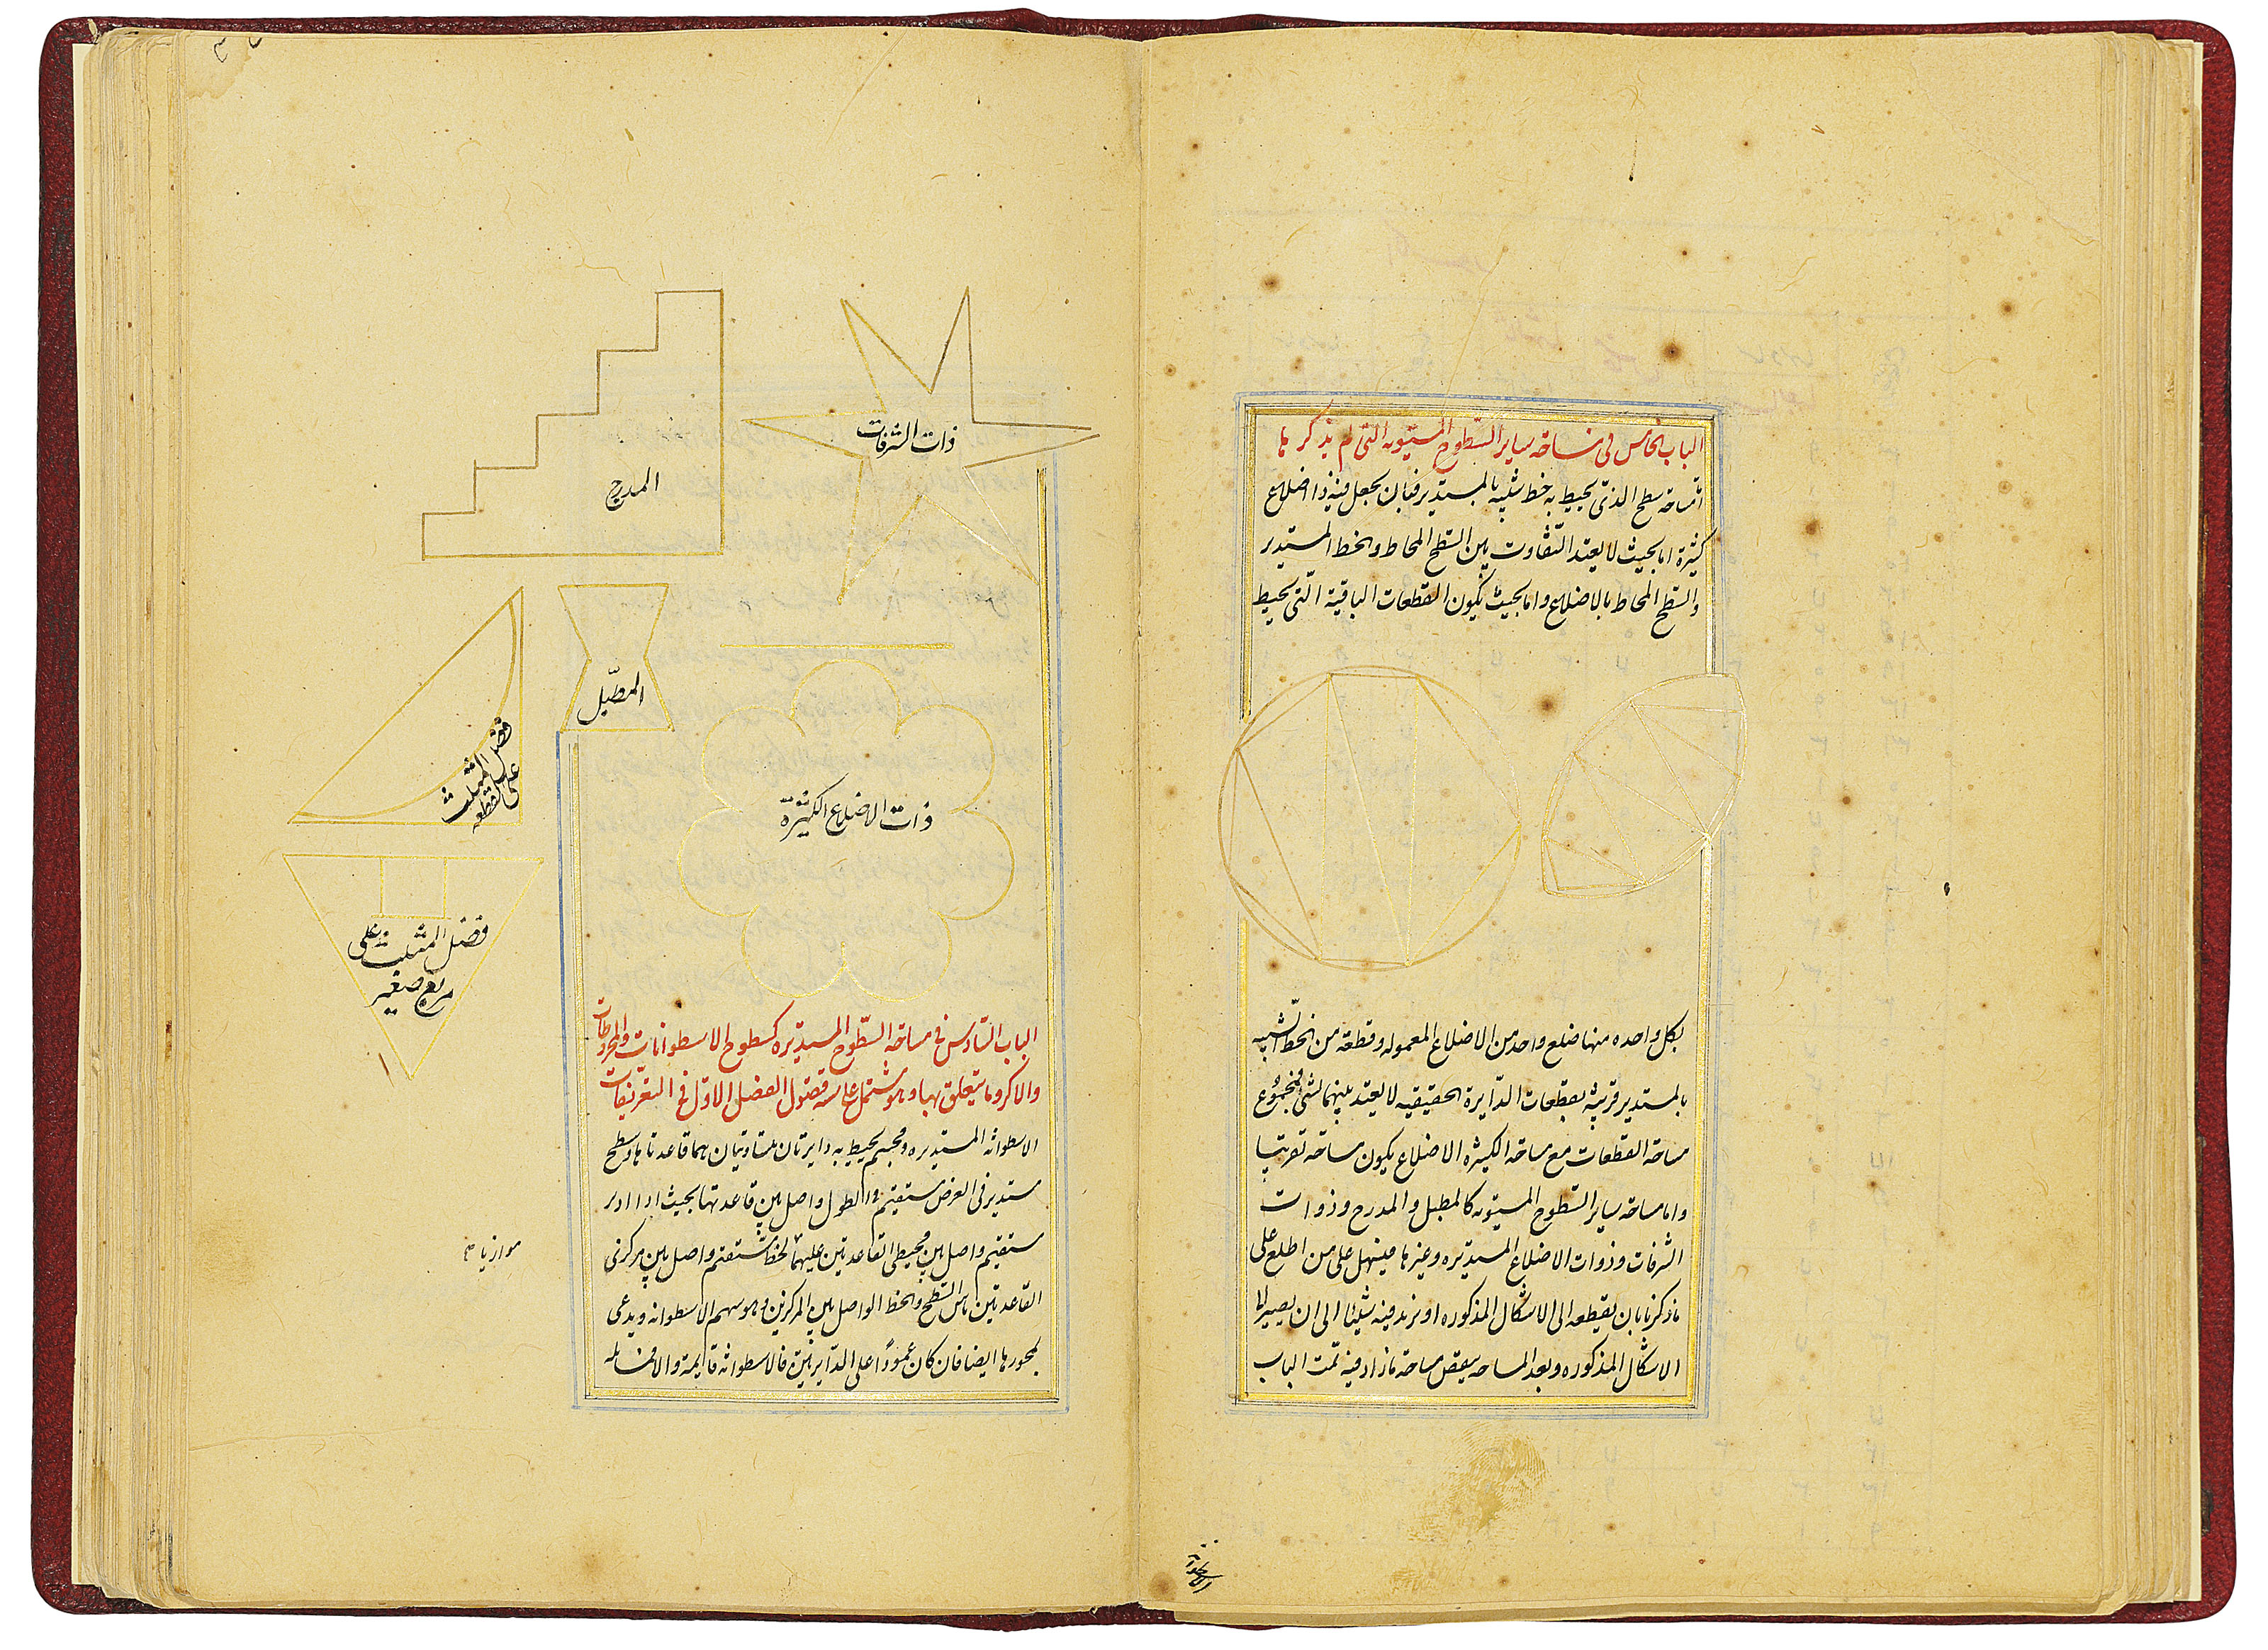 الباب الخامس فی مساحة سایر السّطوح المستویه التی لم نذکرها
امّا مساحة سطح الذی یحیط به خط شبیه بالمستدیر فبان یجعل فیه ذا اضلاع
کثیرة اما بحیث لا یعتد التّفاوت بین السّطح المحاط والخط المستدیر
والسّطح المحاط بالاضلاع واما بحیث یکون القطعات الباقیة الّتی یحیط
بکل واحده منها ضلع واحد من الاضلاع المعموله وقطعة من الخطّ الشبیه
بالمستدیر قریبة بقطعات الدّایرة الحقیقیه لا یعتد بینهما بشئ فمجموع
مساحة القطعات مع مساحة الکثیرة الاضلاع یکون مساحة تقریبا
واما مساحة سایر السّطوح المستویه کالمطبل والمدرج وذوات
الشرفات وذوات الاضلاع المستدیره وغیرها فیسهل علی من اطلع علی
ما ذکرنا بان یقطعه الی الاشکال المذکوره او نزید فیه شیئا الی ان یصیر الی
الاشکال المذکوره وبعد المساحه ینقص مساحة ما زاد فیه تمت الباب
ذات الشرفات
المدرج
المطبّل
فضل المثلث
علی قطعة
ذات الاضلاع الکثیرة
فضل المثلث علی
مربع صغیر
الباب السّادس فی مساحة السّطوح المستدیره کسطوح الاسطوانات والمخروطات
والاکر وما یتعلق بها وهو مشتمل علی فصول الفصل الاوّل فی التعریفات
الاسطوانة المستدیره مجسم یحیط به دایرتان متساویتان هما قاعدتاها وسطح
مستدیر فی العرض مستقیم فی الطول واصل بین قاعدتها بحیث اذا ادیر
مستقیم واصل بین محیطی القاعدتین علیهما لخط مستقیم واصل بین مرکزی
القاعدتین ماس السّطح والخط الواصل بین المرکزین وهو سهم الاسطوانه ویدعی
بمحورها ایضا فان کان عمودًا علی الدّایرتین فالاسطوانة قایمة والا فمائله
موازیا